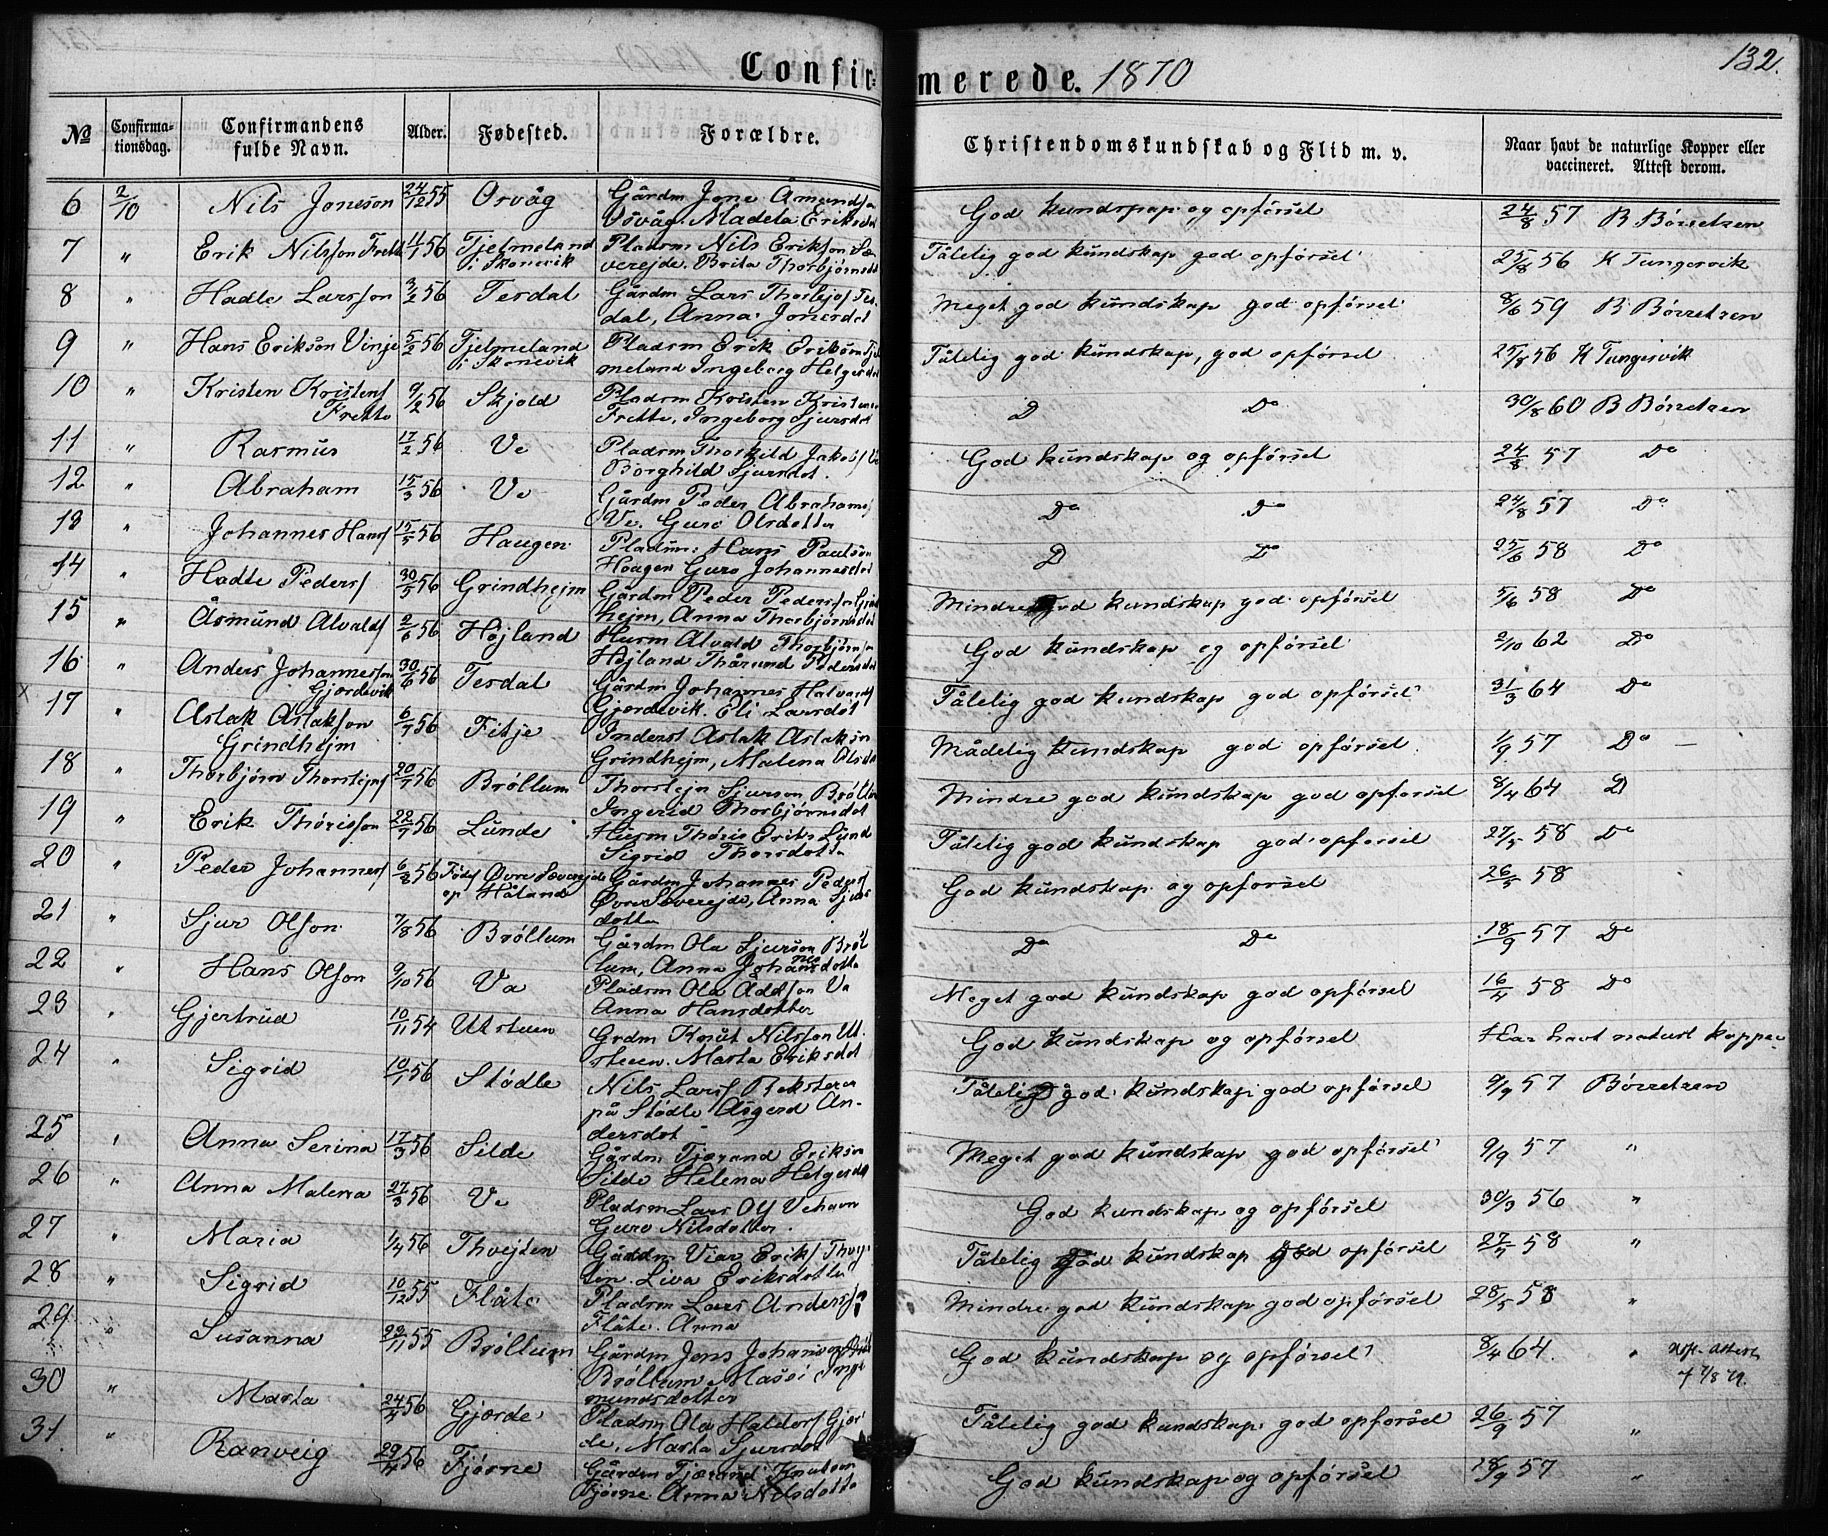 132.
Confirmerede. 1870
No | Confirmationsdag. | Confirmandens fulde Navn. | Alder. | Fødested. | Forældre. | Christendomskundskab og Flid m. v. | Naar havt de naturlige Kopper eller vaccineret. Attest derom.
6 | 2/10 | Nils Joneson | 24/12 55 | Osvåg | Gårdm Jone Åmunds Osvåg. Madela Eriksdot | God kundskap og opførsel | 24/8 57 B Børretzen
7 | " | Erik Nilsson Frette | 11/1 56 | Tjelmeland i Skonevik | Pladsm Nils Erikson Sæverejde. Brita Thorbjørnsdot | Tålelig god kundskap god opførsel | 25/8 56 K Tungesvik
8 | " | Hadle Larsson | 3/2 56 | Tesdal | Gårdm Lars Tesdal, Anna Jonesdot | Meget god kundskap god opførsel | 8/6 59 B Børretzen
9 | " | Hans Erikson Vinje | 5/2 56 | Tjelmeland i Skonevik | Pladsm Erik Erikson Tjelmeland Ingeborg Helgesdot | Tålelig god kundskap, god opførsel | 25/8 56 K Tungesvik
10 | " | Kristen Kristens Frette | 9/2 56 | Skjold | Pladsm Kristen Kristen Frette, Ingeborg Sjursdot | D Do | 30/8 60 B Børretzen
11 | " | Rasmus | 17/2 56 | Ve | Pladsm Thorkild Jakobs Ve Borghild Sjursdot | God kundskap og opførsel | 24/8 57 Do
12 | " | Abraham | 15/3 56 | Ve | Gårdm Peder Abrahams Ve. Guro Olsdotter | Do Do | 24/8 57 Do
13 | " | Johannes Hans | 15/5 56 | Haugen | Pladsm: Hans Paulson Haagen Guro Johannesdot | D Do | 25/6 58 Do
14 | " | Hadle Peders | 30/5 56 | Grindhejm | Gårdm Peder Pederson Grindhejm, Anna Thorbjørnsdot | Mindre god kundskap god opførsel | 5/6 58 Do
15 | " | Åsmund Alvalds | 2/6 56 | Højland | Husm Alvald Thorbjørns Højland Pedersdot | God kundskap og opførsel | 2/10 62 Do
16 | " | Anders Johannesson Gjerdevik | 30/6 56 | Tesdal | Gårdm Johannes Halvards Gjerdevik. Eli Larsdot | Tålelig god kundskap god opførsel | 31/3 64 Do
17 | " | Aslak Aslakson Grindhejm | 6/7 56 | Fitje | Inderst Aslak Aslakson Grindhejm, Malena Olsdot | Mådelig kundskap god opførsel | 1/9 57 Do
18 | " | Thorbjørn Thorstejns | 20/7 56 | Brøllum | Thorstejn Sjurson Brøllum Ingerid Thorbjørnsdot | Mindre god kundskap god opførsel | 8/4 64 D
19 | " | Erik Thørisson | 22/7 56 | Lunde | Husm Thøris Eriks Lund Sigrid Thorsdotte | Tålelig god kundskap god opførsel | 27/5 58 Do
20 | " | Peder Johannes | 6/8 56 | Føds Øvre Sæverejde op Håland | Gårdm Johannes Peders Øvre Sæverejde, Anna Sjursdotte | God kundskap og opførsel | 26/5 58
21 | " | Sjur Olson | 7/8 56 | Brøllum | Gårdm Ola Sjurson Brøllum, Anna Johannesdotte | Do Do | 18/9 57 Do
22 | " | Hans Olson | 9/10 56 | Va | Pladsm Ola Addson Va Anna Hansdotter | Meget god kundskap god opførsel | 16/4 58 Do
23 | " | Gjertrud | 10/11 54 | Utsteen | Grdm Knut Nilsson Utsteen. Marta Eriksdot | God kundskap og opførsel | Har havt naturl kopper
24 | " | Sigrid | 10/1 56 | Stødle | Nils Lars Reksteren på Stødle Åsgerd Andersdot | Tålelig god kundskap god opførsel | 9/9 57 Børretzen
25 | " | Anna Serina | 17/3 56 | Silde | Gårdm Tjærand Erikson Silde Helena Helgesdot | Meget god kundskap god opførsel | 9/9 57 "
26 | " | Anna Malena | 27/3 56 | Ve | Pladsm Lars Ols Vehavn Guro Nilsdotter. | God kundskap og opførsel | 30/9 56 "
27 | " | Maria | 1/4 56 | Thvejten | Gårdm Viar Eriks Thvejten. Liva Eriksdotte | Tålelig god kundskap god opførsel | 27/5 58 "
28 | " | Sigrid | 10/12 55 | Flåte | Pladsm Lars Anders Flåte. Anna | Mindre god kundskap god opførsel | 28/5 58 "
29 | " | Susanna | 23/11 55 | Brøllum | Gårdm Jens Johans Brøllum Ingemundsdotter | God kundskap og opførsel | 8/4 64 " Attest 7/8 71.
30 | " | Marta | 24/4 56 | Gjerde | Pladsm Ola Haldors Gjerde, Marta Sjursdot | Tålelig god kundskap god opførsel | 26/9 57 "
31 | " | Ranveig | 29/4 56 | Fjøsne | Gårdm Tjærand Knutson Fjøsne Anna Nilsdotte | God kundskap og opførsel | 18/9 57 "